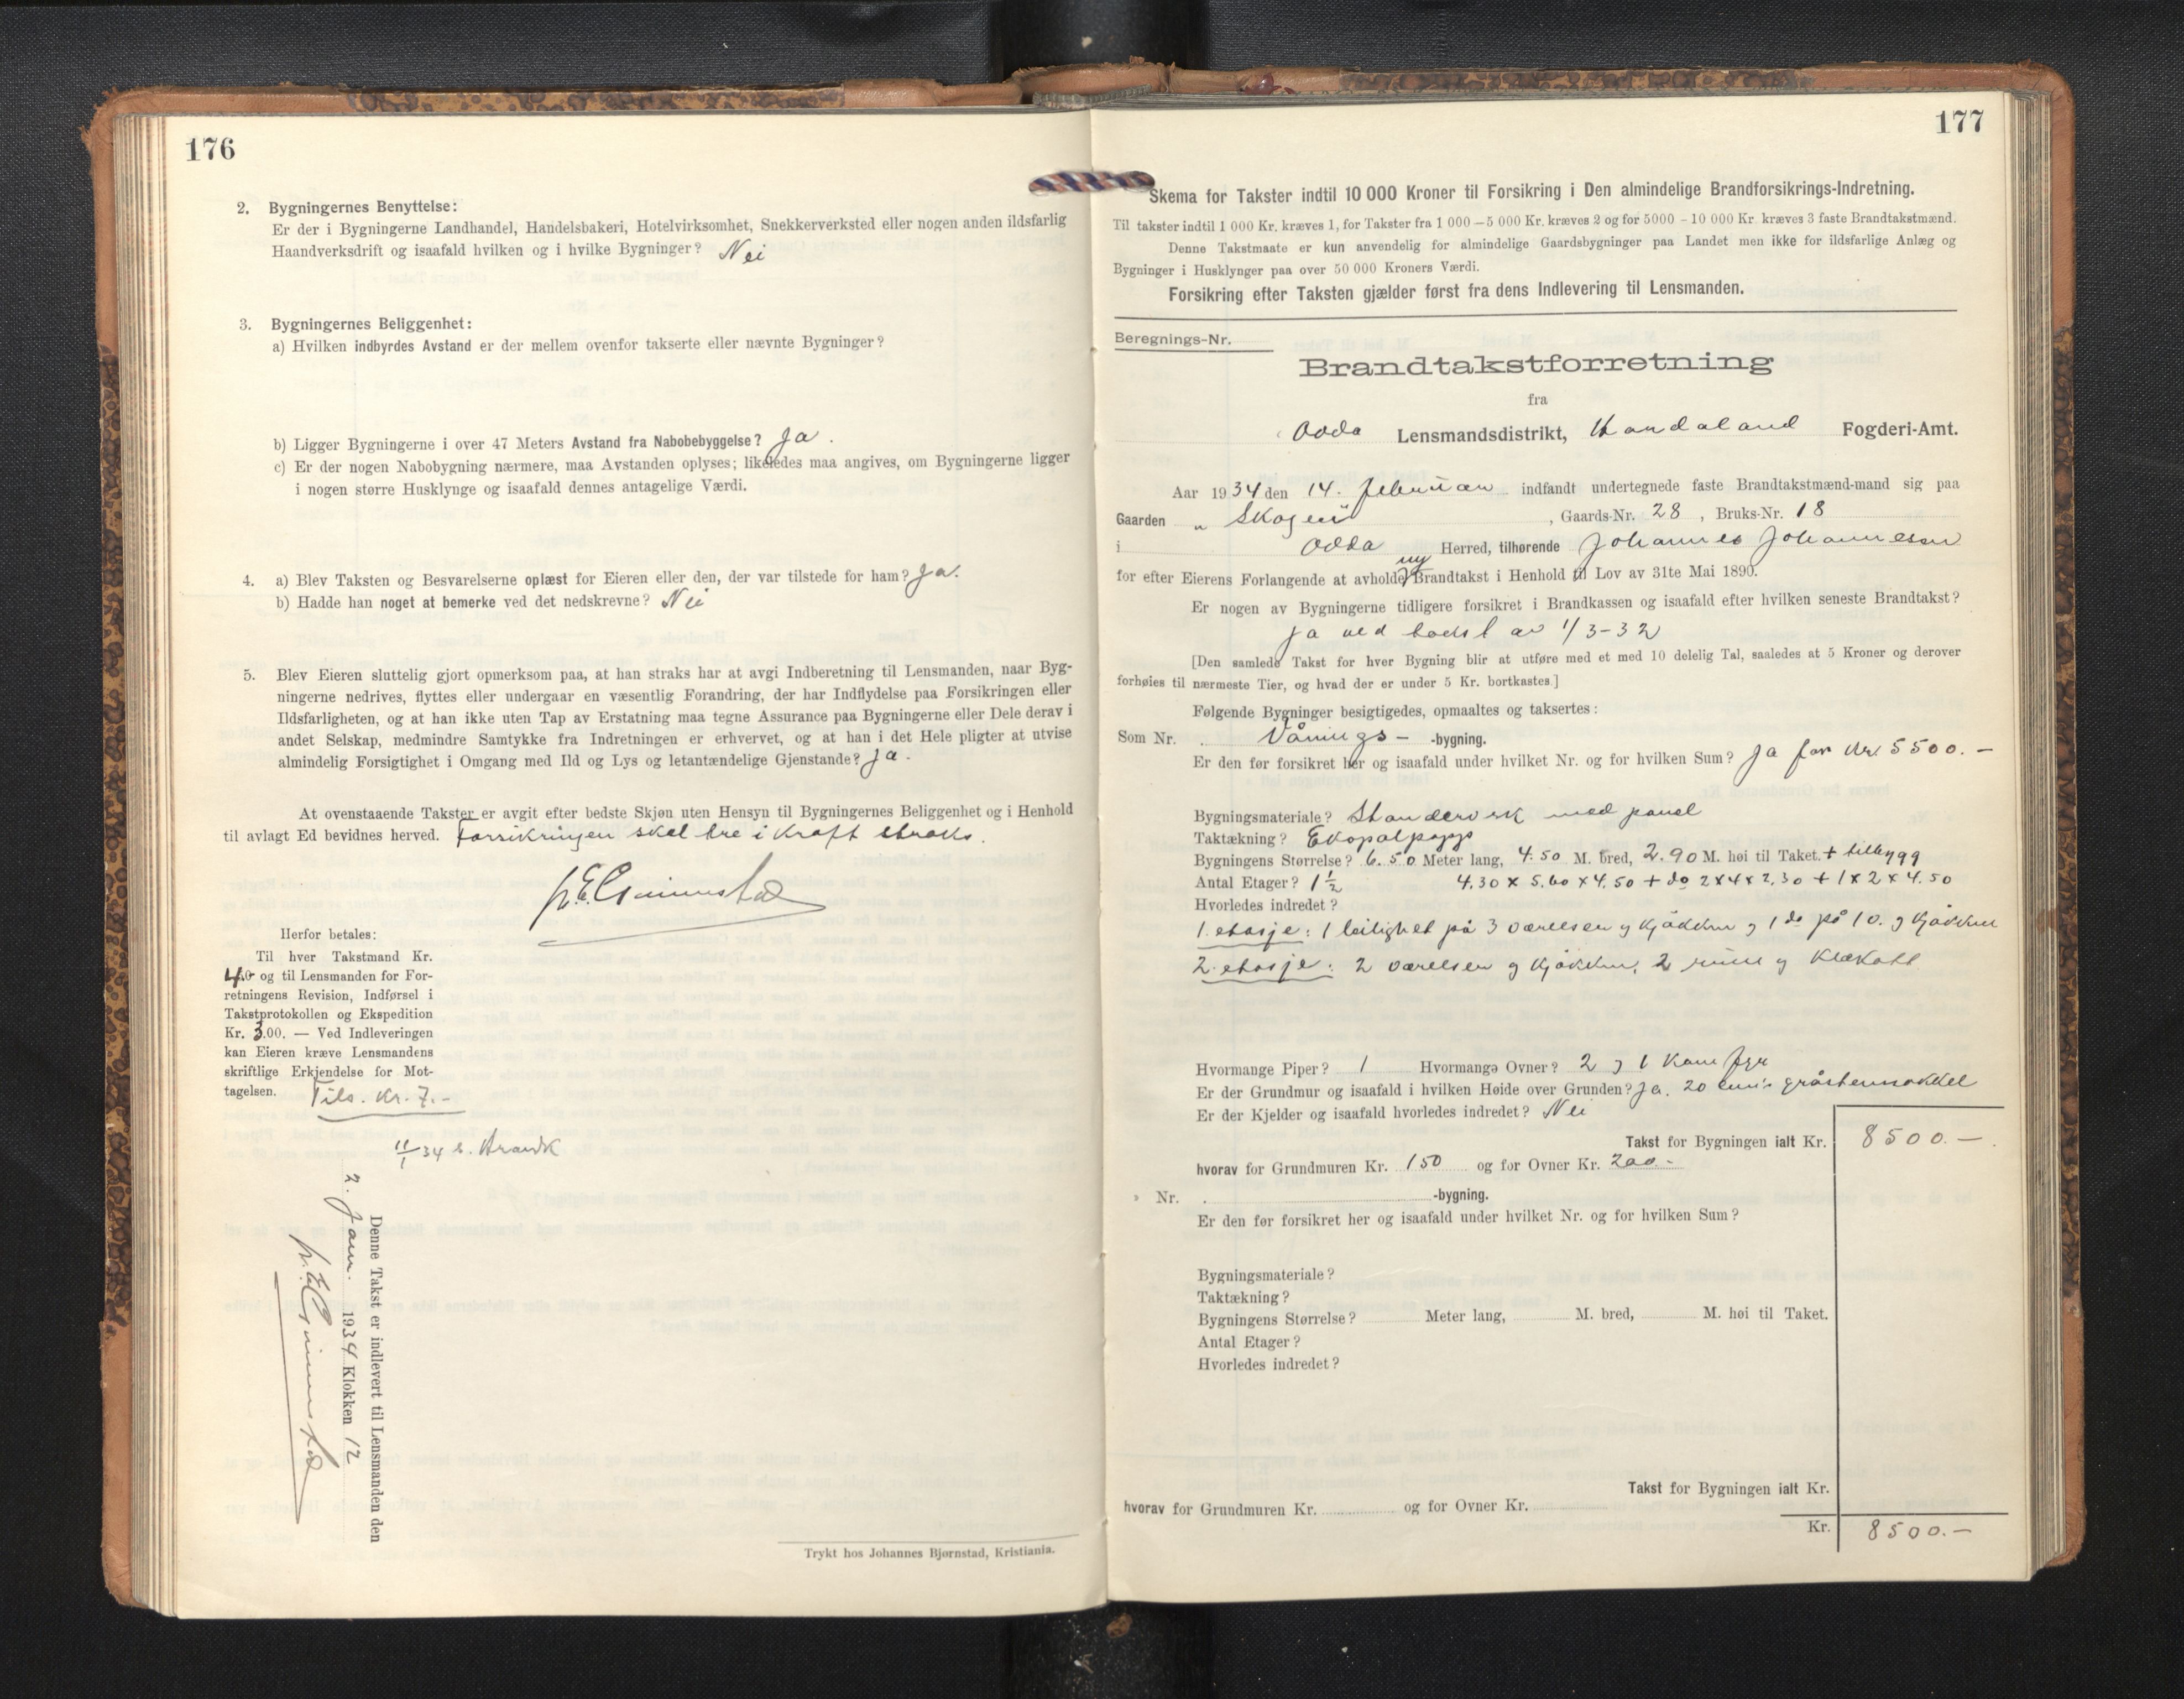 176
2. Bygningernes Benyttelse:
Er der i Bygningerne Landhandel, Handelsbakeri, Hotelvirksomhet, Snekkerverksted eller nogen anden ildsfarlig
Haandverksdrift og isaafald hvilken og i hvilke Bygninger? Nei
3. Bygningernes Beliggenhet:
a) Hvilken indbyrdes Avstand er der mellem ovenfor takserte eller nævnte Bygninger?
b) Ligger Bygningerne i over 47 Meters Avstand fra Nabobebyggelse? Ja.
c) Er der nogen Nabobygning nærmere, maa Avstanden oplyses; likeledes maa angives, om Bygningerne ligger
i nogen større Husklynge og isaafald dennes antagelige Værdi.
4. a) Blev Taksten og Besvarelserne oplæst for Eieren eller den, der var tilstede for ham? Ja.
b) Hadde han noget at bemerke ved det nedskrevne? Nei
5. Blev Eieren sluttelig gjort opmerksom paa, at han straks har at avgi Indberetning til Lensmanden, naar Byg-
ningerne nedrives, flyttes eller undergaar en væsentlig Forandring, der har Indflydelse paa Forsikringen eller
Ildsfarligheten, og at han ikke uten Tap av Erstatning maa tegne Assurance paa Bygningerne eller Dele derav i
andet Selskap, medmindre Samtykke fra Indretningen er erhvervet, og at han i det Hele pligter at utvise
almindelig Forsigtighet i Omgang med Ild og Lys og letantændelige Gjenstande? Ja.
At ovenstaaende Takster er avgit efter bedste Skjøn uten Hensyn til Bygningernes Beliggenhet og i Henhold
til avlagt Ed bevidnes herved. Forsikringen skal tre i kraft straks.
Herfor betales:
Til hver Takstmand Kr.
4.0 og til Lensmanden for For-
retningens Revision, Indførsel i
Takstprotokollen og Ekspedition
Kr. 3.00. — Ved Indleveringen
kan Eieren kræve Lensmandens
skriftlige Erkjendelse for Mot-
tagelsen. Tils. Kr. 7.-
11/1 34 s.
Denne Takst er indlevert til Lensmanden den
2. Jan. 1934 Klokken 12
Trykt hos Johannes Bjørnstad, Kristiania.
177
Skema for Takster indtil 10 000 Kroner til Forsikring i Den almindelige Brandforsikrings-Indretning.
Til takster indtil 1 000 Kr. kræves 1, for Takster fra 1 000 — 5 000 Kr. kræves 2 og for 5000 — 10 000 Kr. kræves 3 faste Brandtakstmænd.
Denne Takstmaate er kun anvendelig for almindelige Gaardsbygninger paa Landet men ikke for ildsfarlige Anlæg og
Bygninger i Husklynger paa over 50 000 Kroners Værdi.
Forsikring efter Taksten gjælder først fra dens Indlevering til Lensmanden.
Beregnings-Nr.
Brandtakstforretning
fra
Odda Lensmandsdistrikt, Hordaland Fogderi-Amt.
Aar 1934 den 14. februar indfandt undertegnede faste Brandtakstmænd-mand sig paa
Gaarden "Skogen" , Gaards-Nr. 28 , Bruks-Nr. 18
i Odda Herred, tilhørende Johannes Johannesen
for efter Eierens Forlangende at avholde ny Brandtakst i Henhold til Lov av 31te Mai 1890.
Er nogen av Bygningerne tidligere forsikret i Brandkassen og isaafald efter hvilken seneste Brandtakst?
Ja ved takst av 1/3-32
[Den samlede Takst for hver Bygning blir at utføre med et med 10 delelig Tal, saaledes at 5 Kroner og derover
forhøies til nærmeste Tier, og hvad der er under 5 Kr. bortkastes.]
Følgende Bygninger besigtigedes, opmaaltes og taksertes:
Som Nr. . Vånings- -bygning.
Er den før forsikret her og isaafald under hvilket Nr. og for hvilken Sum? Ja for Kr. 5500.-
Bygningsmateriale? Standerverk med panel
Taktækning? Ekopalpapp
Bygningens Størrelse? 6.50 Meter lang, 4.50 M. bred, 2.90 M. høi til Taket. + tilbygg
Antal Etager? 1 1/2 4.30 x 5.60 x 4.50 + do 2x4x2,30 + 1x2x4.50
Hvorledes indredet?
1. etasje: 1 leilighet på 3 værelser og kjøkken og 1 do på 1 v. og kjøkken
2. etasje: 2 værelser og kjøkken, 2 rum og klækott
Hvormange Piper? 1 Hvormange Ovner? 2 og 1 komfyr
Er der Grundmur og isaafald i hvilken Høide over Grunden? Ja, 20 cm's gråstensokkel
Er der Kjelder og isaafald hvorledes indredet? Nei
Takst for Bygningen ialt Kr. 8500.-
hvorav for Grundmuren Kr. 150 og for Ovner Kr. 200.-
» Nr. . -bygning.
Er den før forsikret her og isaafald under hvilket Nr. og for hvilken Sum?
Bygningsmateriale?
Taktækning?
Bygningens Størrelse? Meter lang, M. bred, M. høi til Taket.
Antal Etager?
Hvorledes indredet?
Takst for Bygningen ialt Kr.
hvorav for Grundmuren Kr. og for Ovner Kr.
Kr. 8500.-